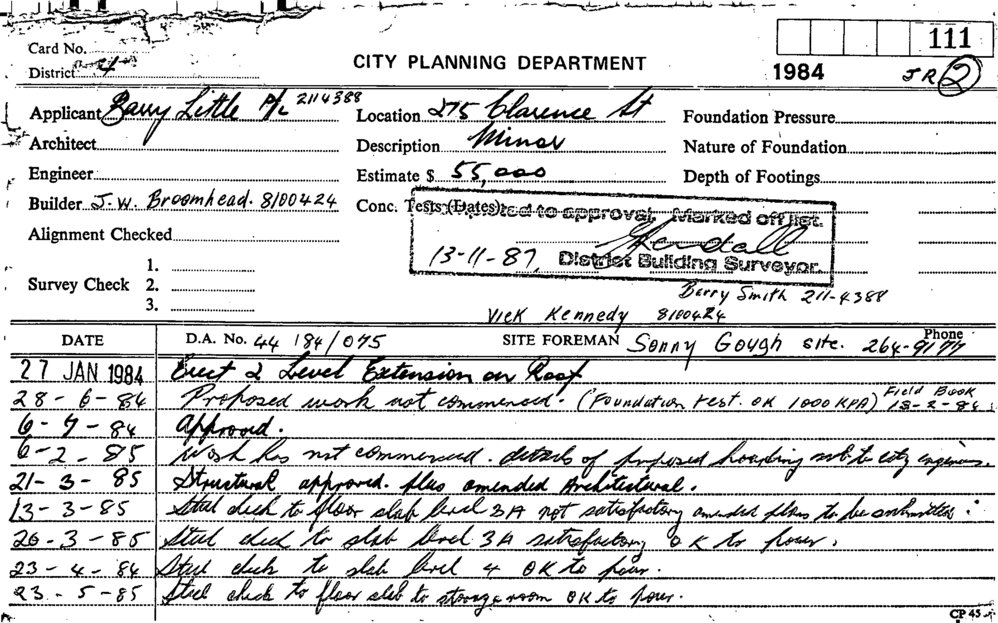 111
Card No.
CITY PLANNING DEPARTMENT
1984 JR 2
District 4
Applicant Barry Little P/L 2114388 Location 275 Clarence St Foundation Pressure
Architect Description Minor Nature of Foundation
Engineer Estimate $ 55,000 Depth of Footings
Builder J.W. Broomhead. 8100424 Conc. Tests (Dates)
to approval. Marked off list.
Alignment Checked
13-11-87 Kendall
District Building Surveyor.
Survey Check 1.
2.
3.
Barry Smith 211-4388
Vick Kennedy 8100424
DATE D.A. No. 44 184/075 SITE FOREMAN Sonny Gough site. Phone 264-9177
27 JAN 1984 Erect 2 Level Extension on Roof
28-6-84 Proposed work not commenced. (Foundation test. OK 1000 KPA) Field Book 13-2-84
6-7-84 Approved.
6-2-85 Work has not commenced. details of proposed hoarding sub. to city engineer.
21-3-85 Structural approved. plus amended Architectural.
13-3-85 Steel check to floor slab level 3A not satisfactory amended plans to be submitted.
20-3-85 Steel check to slab level 3A satisfactory OK to pour.
23-4-84 Steel check to slab level 4 OK to pour.
23-5-85 Steel check to floor slab to storage room OK to pour.
CP 45